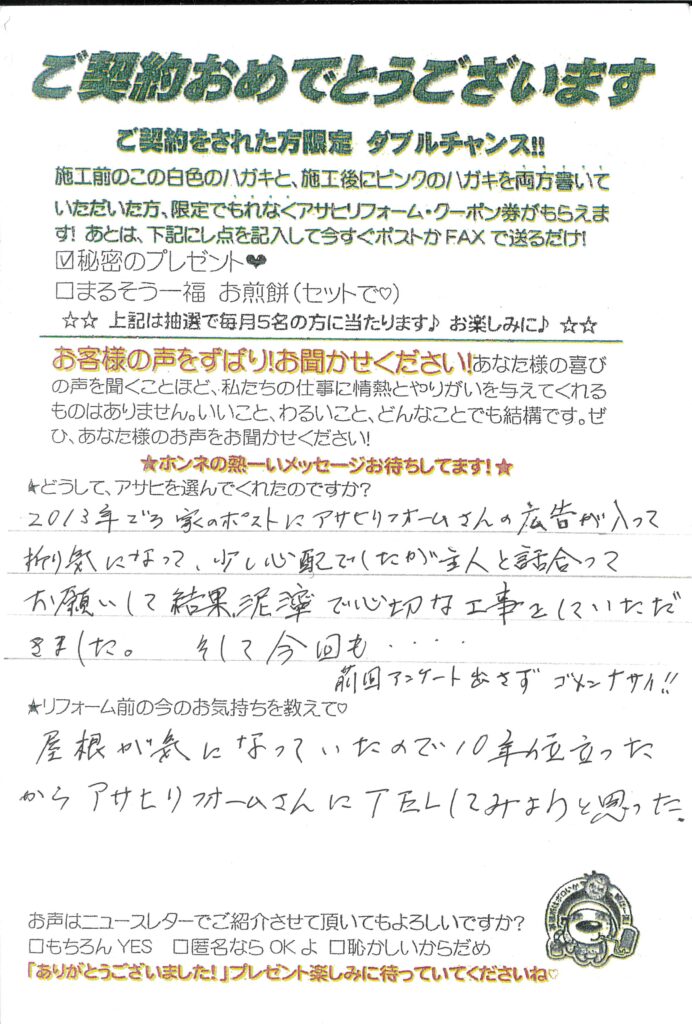 ご契約おめでとうございます
ご契約をされた方限定 ダブルチャンス!!
施工前のこの白色のハガキと、施工後にピンクのハガキを両方書いて
いただいた方、限定でもれなくアサヒリフォーム・クーポン券がもらえま
す! あとは、下記にレ点を記入して今すぐポストかFAXで送るだけ!
☑秘密のプレゼント❤
□まるそう一福 お煎餅(セットで♡)
☆☆ 上記は抽選で毎月5名の方に当たります♪ お楽しみに♪ ☆☆
お客様の声をずばり!お聞かせください!あなた様の喜び
の声を聞くことほど、私たちの仕事に情熱とやりがいを与えてくれる
ものはありません。いいこと、わるいこと、どんなことでも結構です。ぜ
ひ、あなた様のお声をお聞かせください!
★ホンネの熱ーいメッセージお待ちしてます!★
★どうして、アサヒを選んでくれたのですか?
2013年ごろ 家のポストにアサヒリフォームさんの広告が入って
気になって、少し心配でしたが主人と話合って
お願いして結果、で心切な工事をしていただ
きました。 そして今回も・・・・
前回アンケート出さず ゴメンナサイ!!
★リフォーム前の今のお気持ちを教えて♡
屋根が気になっていたので10年位立った
からアサヒリフォームさんにTELしてみようと思った。
お声はニュースレターでご紹介させて頂いてもよろしいですか?
□もちろんYES □匿名ならOKよ □恥かしいからだめ
「ありがとうございました!」プレゼント楽しみに待っていてくださいね♡